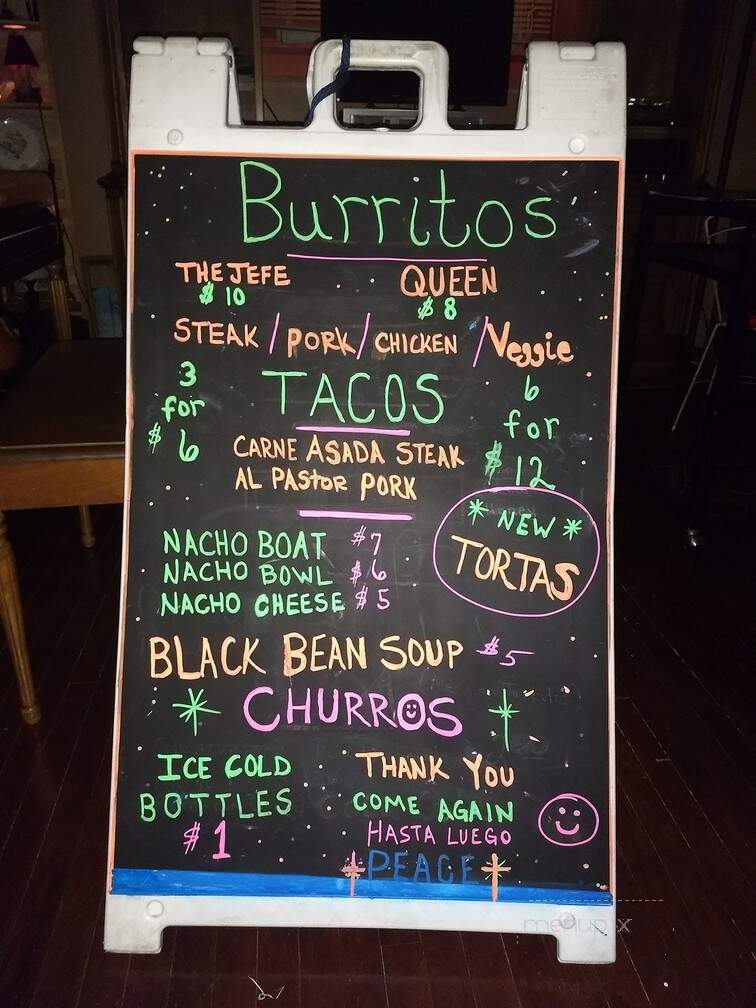 Burritos
THE JEFE QUEEN
$10 $8
STEAK / PORK / CHICKEN / Veggie
TACOS
3 for $6
6 for $12
CARNE ASADA STEAK
AL PASTOR PORK
* NEW *
TORTAS
NACHO BOAT $7
NACHO BOWL $6
NACHO CHEESE $5
BLACK BEAN SOUP $5
CHURROS
ICE COLD
BOTTLES
$1
THANK YOU
COME AGAIN
HASTA LUEGO
PEACE
menupix